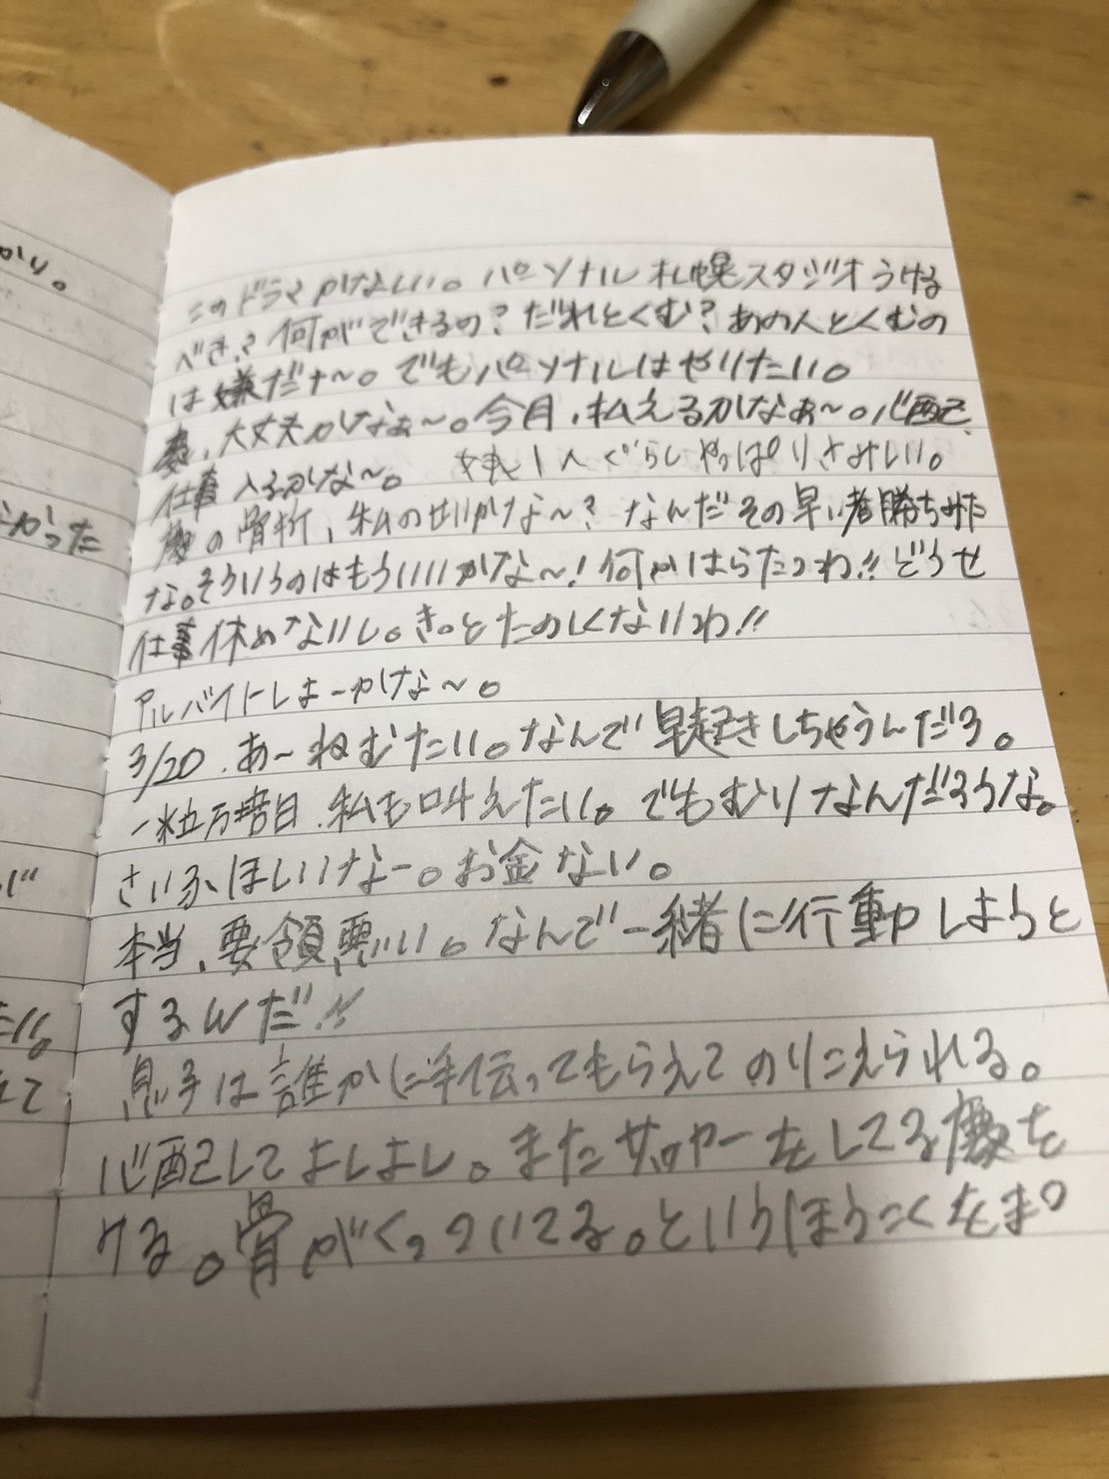 かい。
かった
このドラマかなしい。パーソナル札幌スタジオうける
べき?何ができるの?だれとくむ?あの人とくむの
は嫌だナ〜。でもパーソナルはやりたい。
大丈夫かなぁ〜。今月、払えるかなぁ〜。心配、
仕事入るかな〜。 娘1人ぐらしやっぱりさみしい。
の骨折、私のせいかな〜?なんだその早い者勝ちみた
な。そういうのはもういいかな〜!何かはらたつわ!!どうせ
仕事休めないし。きっとたのしくないわ!!
アルバイトしよーかな〜。
3/20.あ〜ねむたい。なんで早起きしちゃうんだろ。
一粒万倍日.私も叶えたい。でもむりなんだろうな。
さいふほしいなー。お金ない。
本当、要領悪い。なんで一緒に行動しようと
するんだ!!
息子は誰かに手伝ってもらえてのりこえられる。
心配してよしよし。またサッカーをしてる を
ける。骨がくっついてる。というほうこくをま